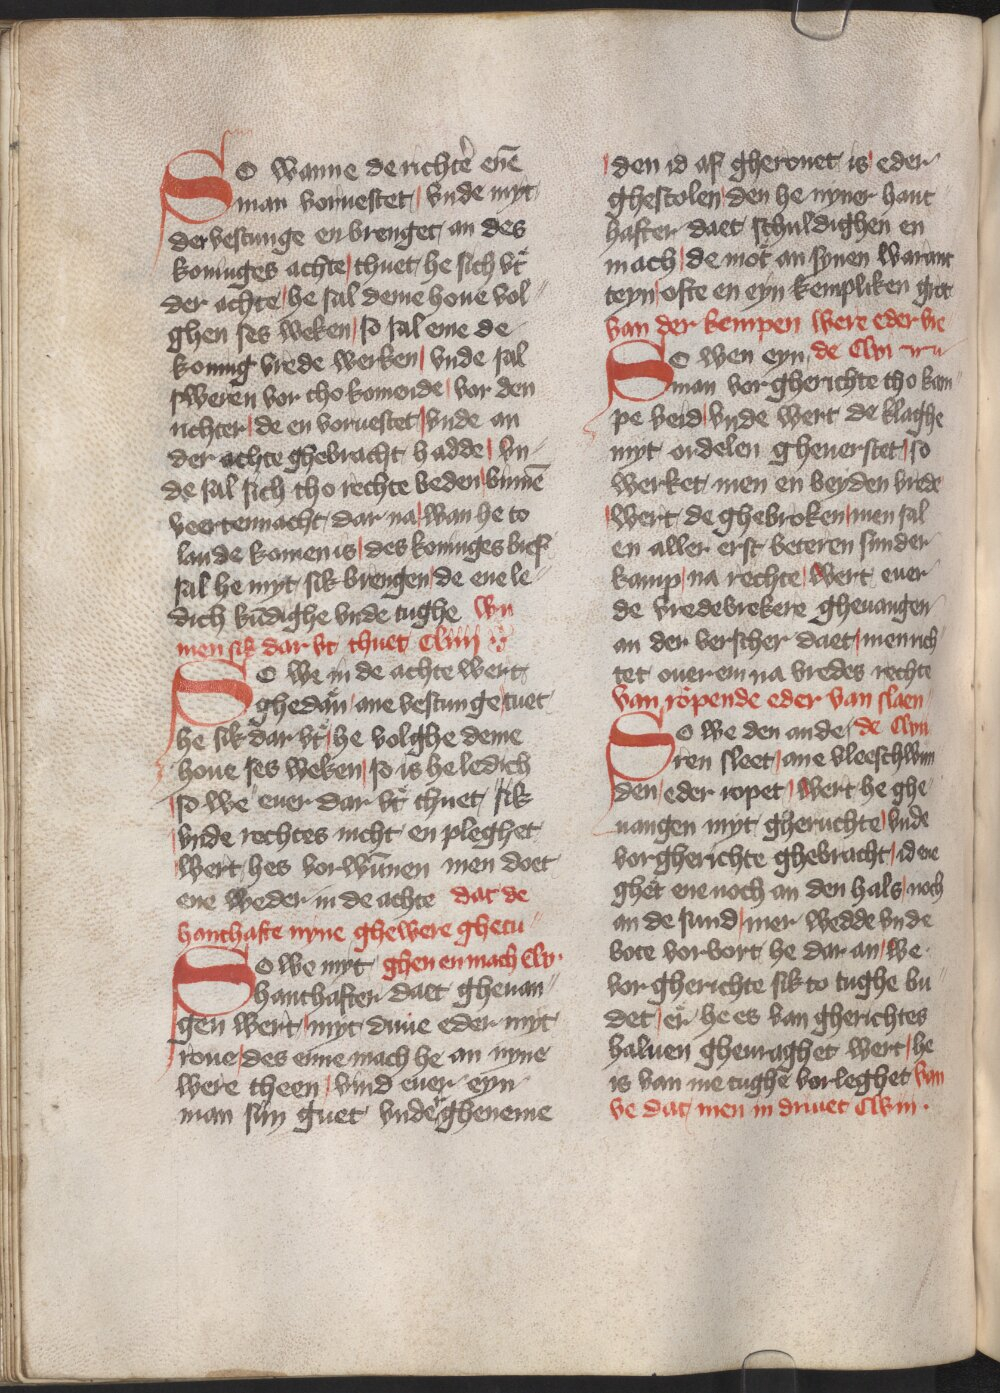 So wanne de richter enē
man voruestet vnde myt
der vestunge en brenget an des
koninges achte thuet he sich vt
der achte he sal deme houe vol
ghen ses weken so sal eme de
koning vrede werken vnde sal
sweren vor tho komende vor den
richter de en voruestet vnde an
der achte ghebracht hadde vn
de sal sich tho rechte beden binnē
veertennacht dar na wan he to
lande komen is des koninges bref
sal he myt sik brengen de ene le
dich kūdighe vnde tughe wu
men sik dar vt thuet cliiij
So we in de achte wert
ghedan ane vestunge tuet
he sik dar vt he volghe deme
houe ses weken so is he ledich
so we euer dar vt thuet sik
vnde rechtes nicht en pleghet
wert hes vorwūnen men doet
ene weder in de achte dat de
hanthafte nyne ghewere ghetu
So we myt ghen en mach clv.
hanthafter daet gheuan
gen wert myt duue eder myt
roue des enne mach he an nyne
were theen vind euer eyn
man sin guet vnder gheneme
den id af gherouet is eder
ghestolen den he nyner hant
hafter daet schuldighen en
mach de mot an synen warant
teyn ofte en eyn kempliken grot
van der kempen were eder vre
So wen eyn de clvi
man vor gherichte tho kam
pe veid vnde wert de klaghe
myt ordelen gheuerstet so
werket men en beyden vrede
wert de ghebroken men sal
en aller erst beteren sunder
kamp na rechte wert euer
de vredebrekere gheuangen
an der verscher daet men rich
tet ouer em na vredes rechte
van ropende eder van slaen
So we den ande de clvii
ren sleet ane vleeschwun
den eder ropet wert he ghe
uangen myt gheruchte vnde
vor gherichte ghebracht id ene
ghet ene noch an den hals noch
an de hand mer wedde vnde
bote vorbort he dar an we
vor gherichte sik to tughe bu
det er he es van gherichtes
haluen gheuraghet wert he
is van me tughe vorleghet van
ve dat men in driuet clviii.